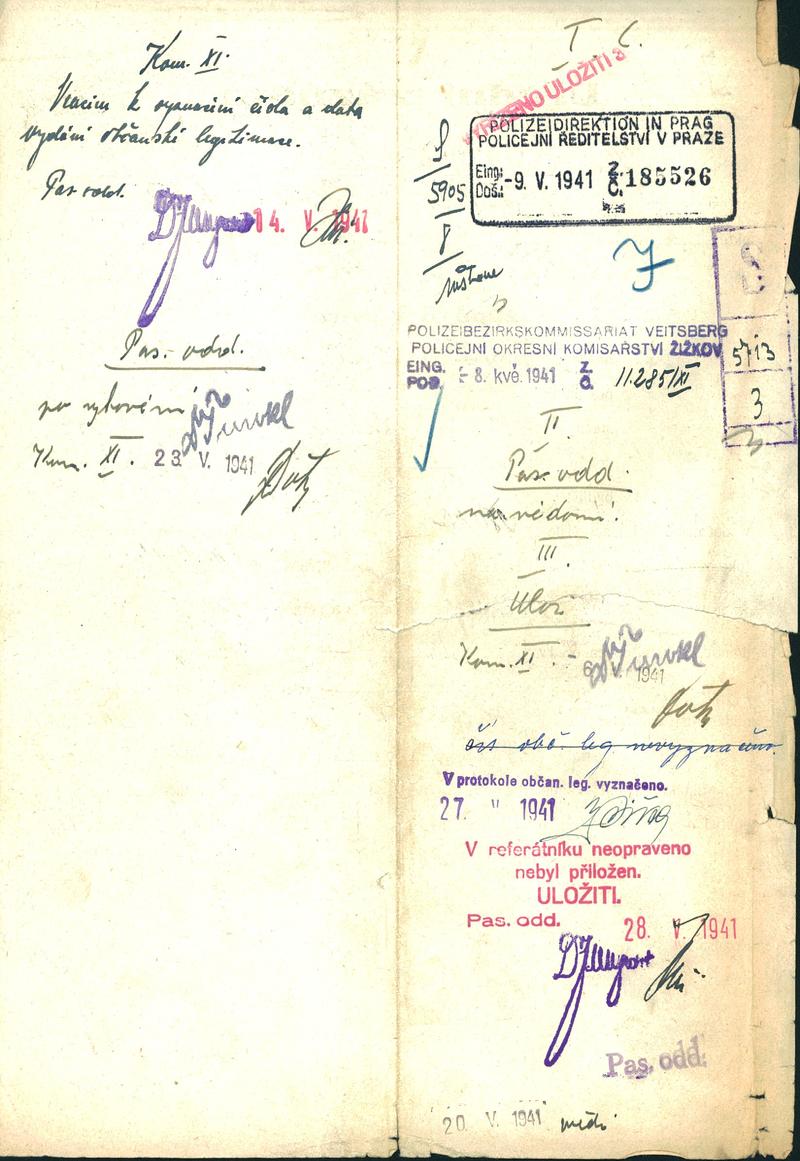 Kom. XI.
Vracím k vyznačení čísla a data
vydání občanské legitimace.
Pas. odd.
14. V. 1941
Pas. odd.
po vyhovění
Kom. XI. 23. V. 1941
I. C.
ULOŽITI
POLIZEIDIREKTION IN PRAG
POLICEJNÍ ŘEDITELSTVÍ V PRAZE
Eing.: Došl.: -9. V. 1941 Z. Č. 185526
5905
8
POLIZEIBEZIRKSKOMMISSARIAT VEITSBERG
POLICEJNÍ OKRESNÍ KOMISAŘSTVÍ ŽIŽKOV
EING. POD. - 8. kvě. 1941 Z. Č. 11.285/XI
5713
3
II.
Pas. odd.
na vědomí.
III.
Ulož
Kom. XI. - 1941
čís obč. leg nevyznačeno.
V protokole občan. leg. vyznačeno.
27. V 1941
V referátníku neopraveno
nebyl přiložen.
ULOŽITI.
Pas. odd. 28. V. 1941
Pas. odd.
20. V. 1941